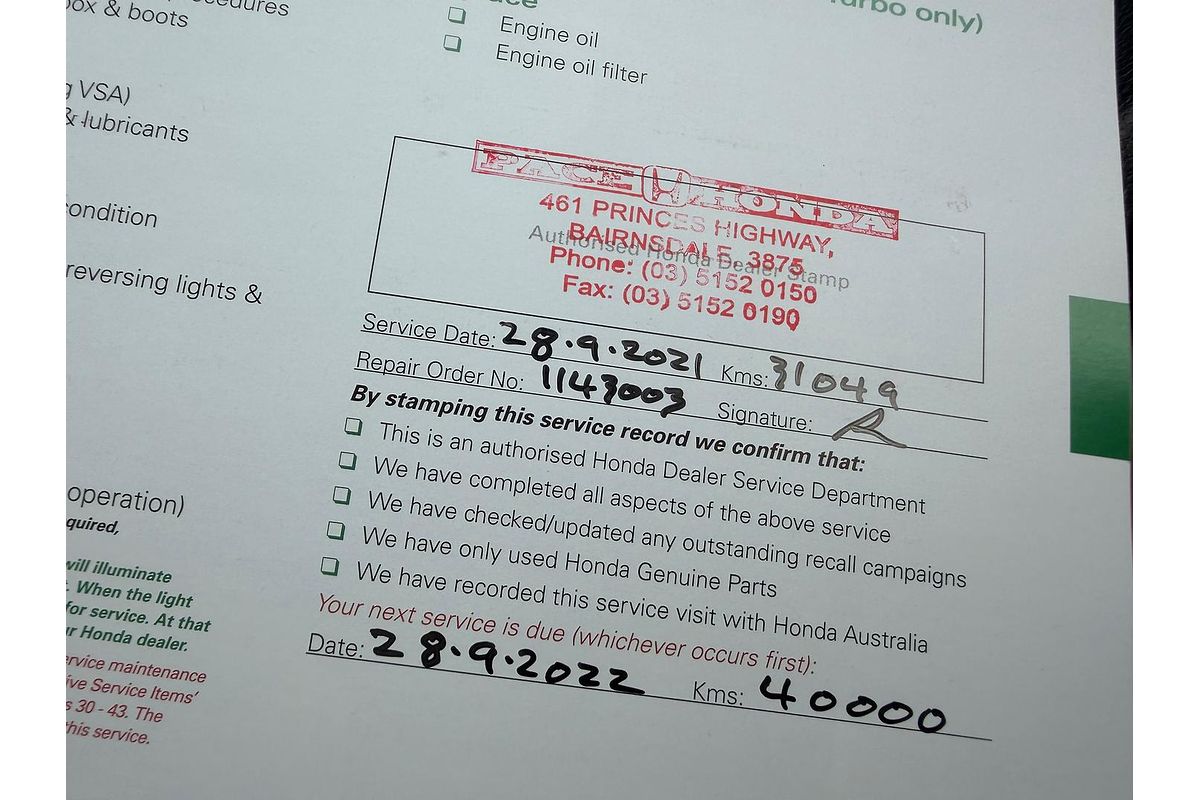 procedures
box & boots
VSA)
& lubricants
condition
reversing lights &
operation)
will illuminate
When the light
for service. At that
Honda dealer.
maintenance
Service Items'
30 - 43. The
this service.
Turbo only)
Engine oil
Engine oil filter
PACE HONDA
461 PRINCES HIGHWAY,
BAIRNSDALE, 3875
Authorised Honda Dealer Stamp
Phone: (03) 5152 0150
Fax: (03) 5152 0190
Service Date: 28.9.2021 Kms: 31049
Repair Order No: 1143003 Signature:
By stamping this service record we confirm that:
This is an authorised Honda Dealer Service Department
We have completed all aspects of the above service
We have checked/updated any outstanding recall campaigns
We have only used Honda Genuine Parts
We have recorded this service visit with Honda Australia
Your next service is due (whichever occurs first):
Date: 28.9.2022 Kms: 40000